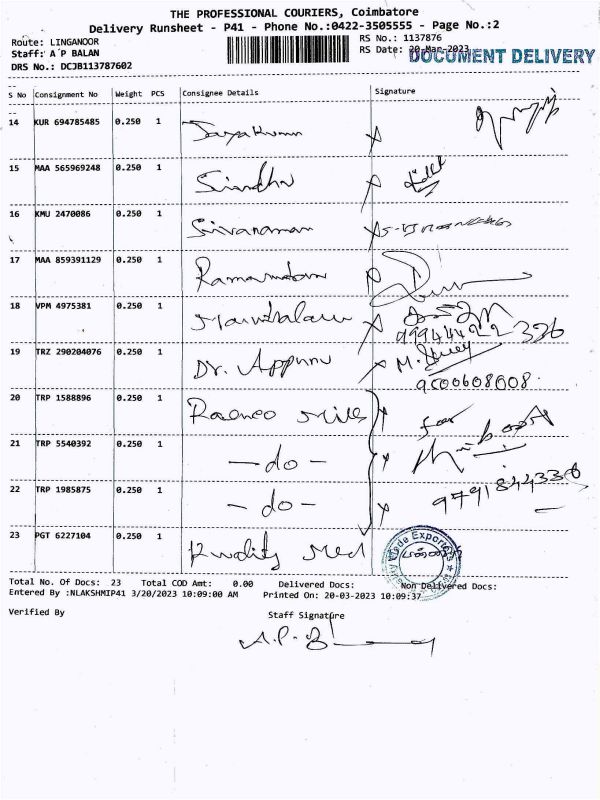 THE PROFESSIONAL COURIERS, Coimbatore
Delivery Runsheet - P41 - Phone No.:0422-3505555 - Page No.:2
Route: LINGANOOR
RS No.: 1137876
Staff: A P BALAN
RS Date: 20-Mar-2023
DOCUMENT DELIVERY
DRS No.: DCJB113787602
S No Consignment No Weight PCS Consignee Details Signature
14 KUR 694785485 0.250 1 Jayakumar X
15 MAA 565969248 0.250 1 Sindhu X
16 KMU 2470086 0.250 1 Sivaraman X
17 MAA 859391129 0.250 1 X
18 VPM 4975381 0.250 1 X
9994422326
19 TRZ 290204076 0.250 1 Dr. Appunu X M.
9500608008
20 TRP 1588896 0.250 1 X for
21 TRP 5540392 0.250 1 - do - X
22 TRP 1985875 0.250 1 - do - X 9791844336
23 PGT 6227104 0.250 1 Med
Total No. Of Docs: 23 Total COD Amt: 0.00 Delivered Docs: Non Delivered Docs:
Entered By :NLAKSHMIP41 3/20/2023 10:09:00 AM Printed On: 20-03-2023 10:09:37
Verified By Staff Signature